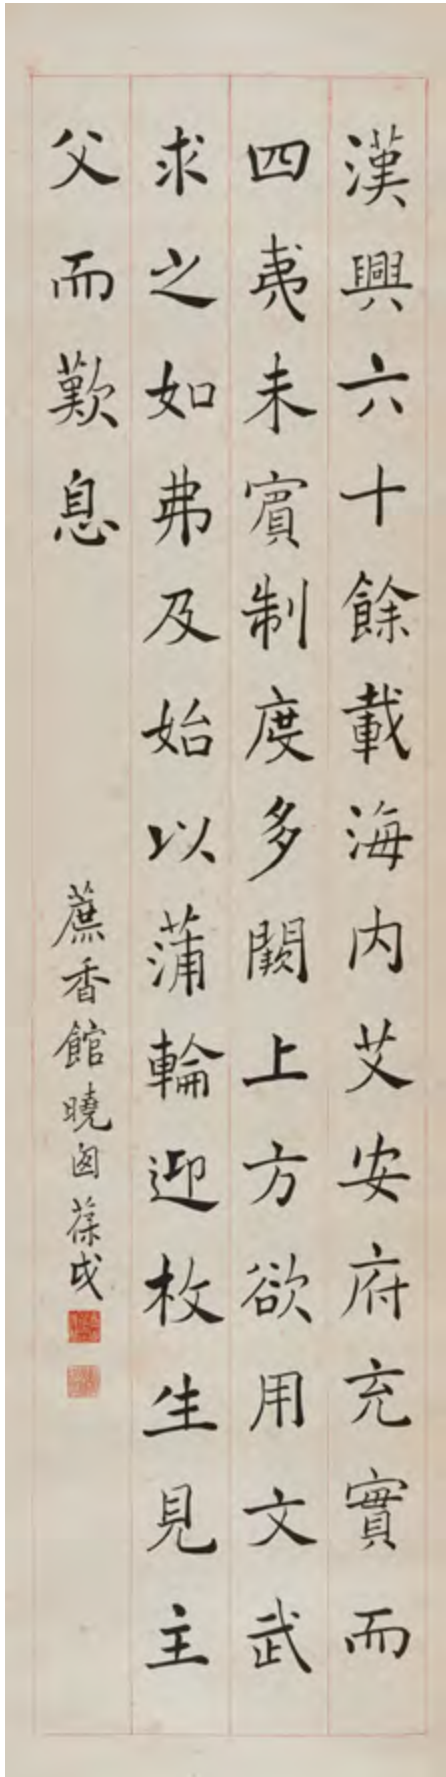 漢興六十餘載海内艾安府充實而
四夷未賓制度多闕上方欲用文武
求之如弗及始以蒲輪迎枚生見主
父而歎息
蔗香館曉囱葆成